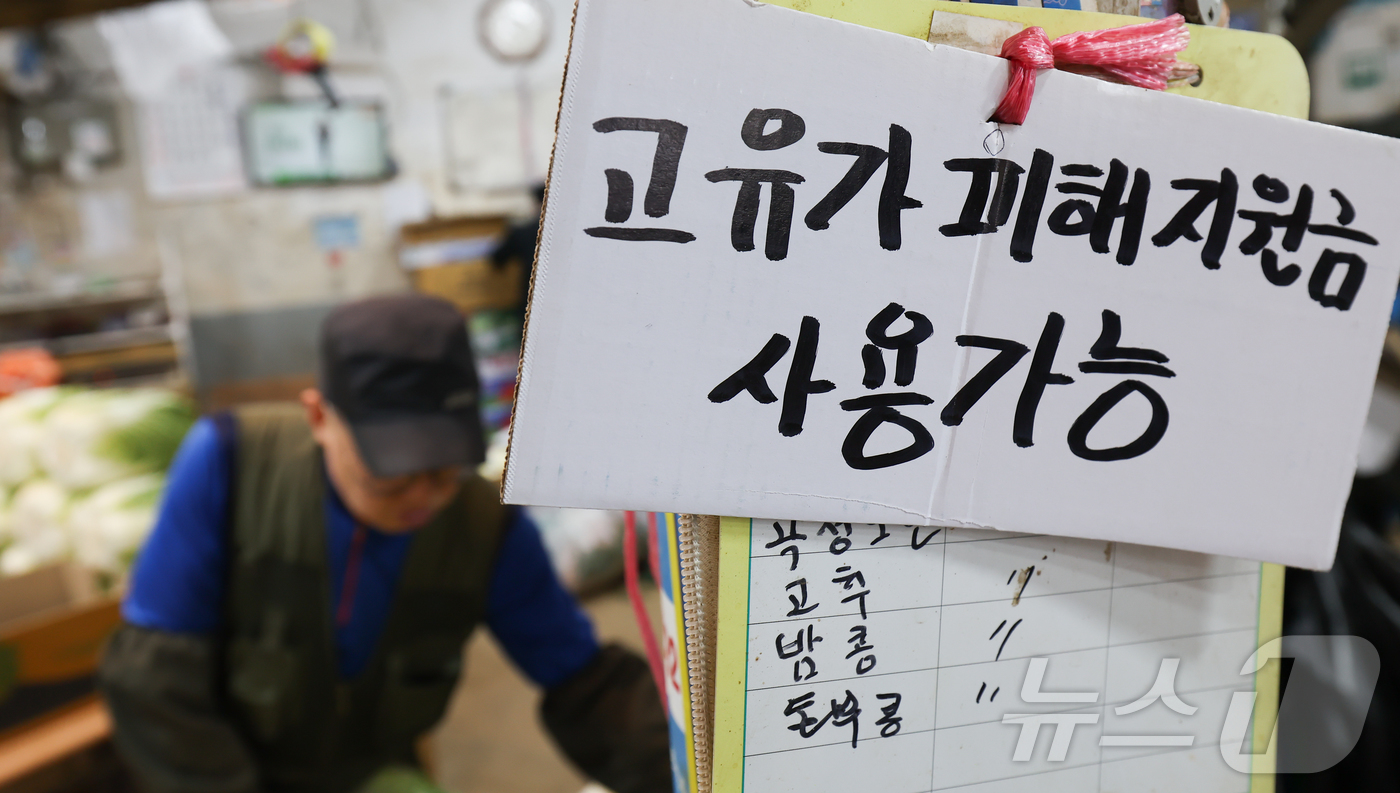 고유가 피해지원금
사용가능
고추 〃
밤콩 〃
〃
뉴스1